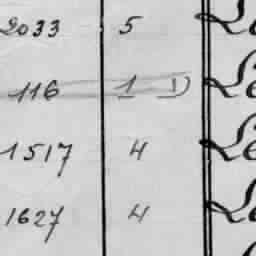 2033 5 Le
116 1 1) Le
1517 4 Le
1627 4 Le